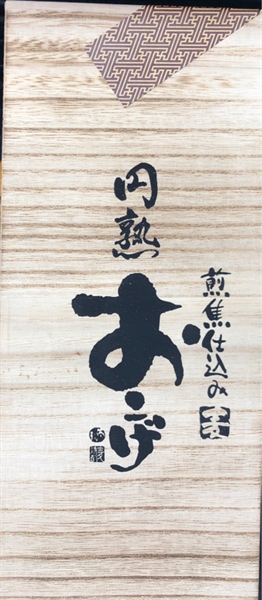 円熟
おこげ
煎焦仕込み